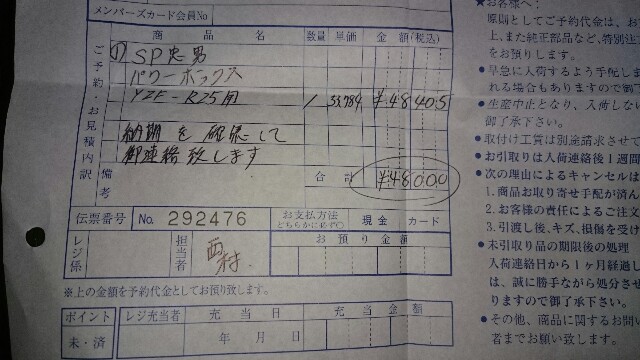 メンバーズカード会員No
商品名 数量 単価 金額(税込)
ご予約・お見積内訳
① SP忠男
パワーボックス
YZF-R25用 1 33,984 ¥48405
納期を確認して
御連絡致します
備考
合計 ¥48000
伝票番号 No. 292476 お支払方法 どちらかに必ず○ 現金 カード
レジ係 担当者 西村 お預り金額
※上の金額を予約代金としてお預り致します。
ポイント レジ充当者 充当日 充当金額
未・済 年 月 日
★お客様へ:
原則としてご予約代金は、お
上、また純正部品など、特別注
をお預りします。
●早急に入荷するよう手配しま
れる場合もありますので御了
●生産中止となり、入荷しない
御了承下さい。
●取付け工賃は別途請求させて
●お引取りは入荷連絡後1週間
●次の理由によるキャンセルは
1.商品お取り寄せ手配が済ん
2.お客様の責任によるご注文
3.引渡し後、キズ、損傷を受け
●未引取り品の期限後の処理
入荷連絡日から1ヶ月経過し
は、誠に勝手ながら処分させ
りますので御了承下さい。
●その他、商品に関するお問い
者までお願い致します。